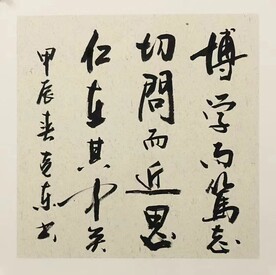 博学而篤志
切問而近思
仁在其中矣
甲辰春克東书